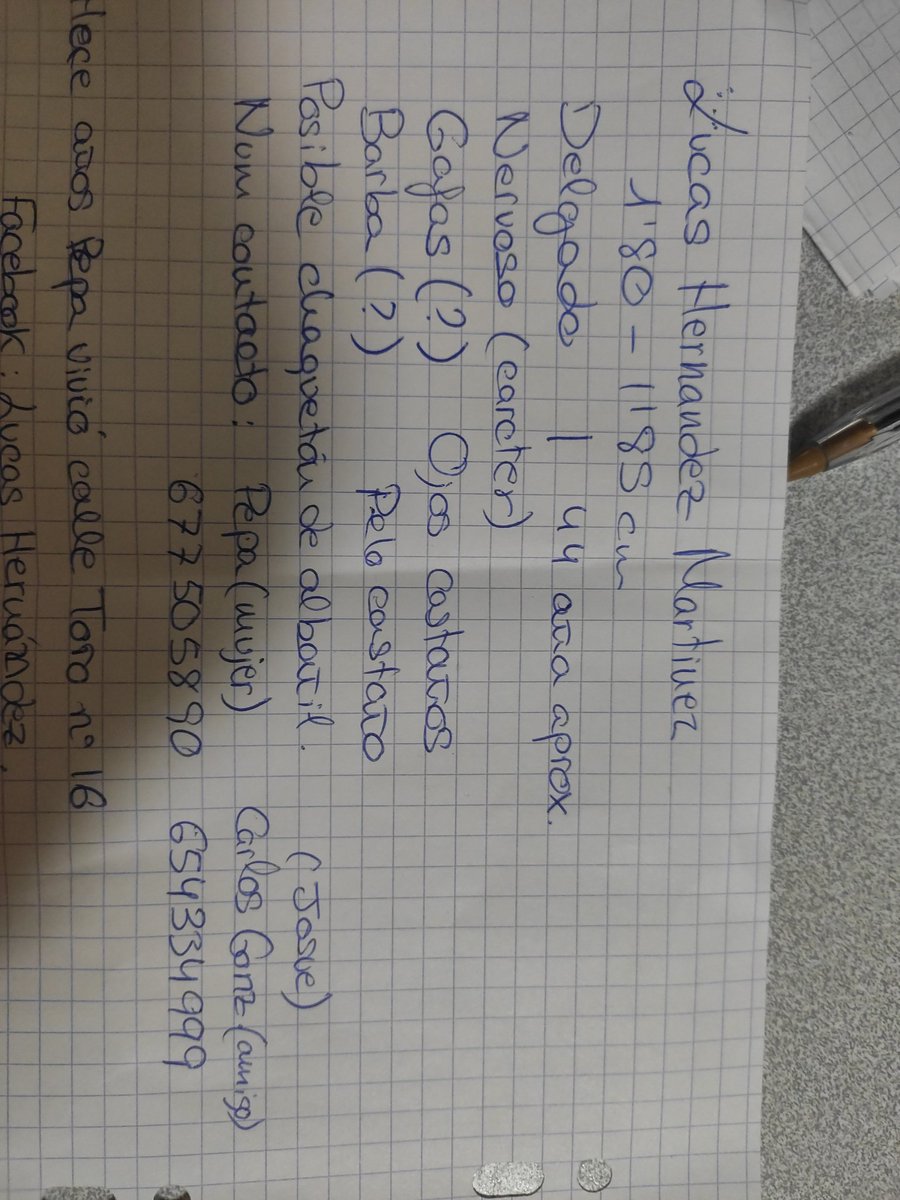 Lucas Hernandez Martinez
1'80 - 1'185 cm
Delgado | 44 aña aprox.
Nervoso (carcter)
Gafas (?) Ojos castaños
Barba (?) Pelo castaño
Posible chaquetón de albañil.
(Josue)
Num contacto: Pepa (mujer) Carlos Gonz (amigo)
677505890 654334999
Hece años Pepa vivió calle Toro nº 16
Facebook: Lucas Hernández.